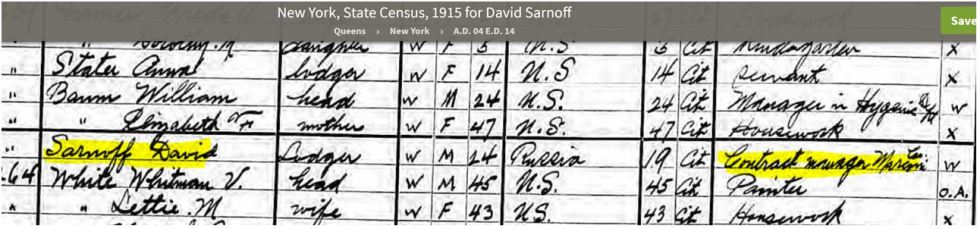 New York, State Census, 1915 for David Sarnoff
Queens › New York › A.D. 04 E.D. 14
Save
" Dorothy. M daughter W F 5 U.S. 5 Cit Kindergarten X
" Stater Anna lodger W F 14 U.S 14 Cit Servant X
" Baum William head W M 24 U.S. 24 Cit Manager in W
" " Elizabeth mother W F 47 U.S. 47 Cit Housework X
" Sarnoff David Lodger W M 24 Russia 19 Cit Contract manager Marconi W
64 White Whitman V. head W M 45 U.S. 45 Cit Painter O.A.
" " Lettie. M wife W F 43 U.S. 43 Cit Housework X